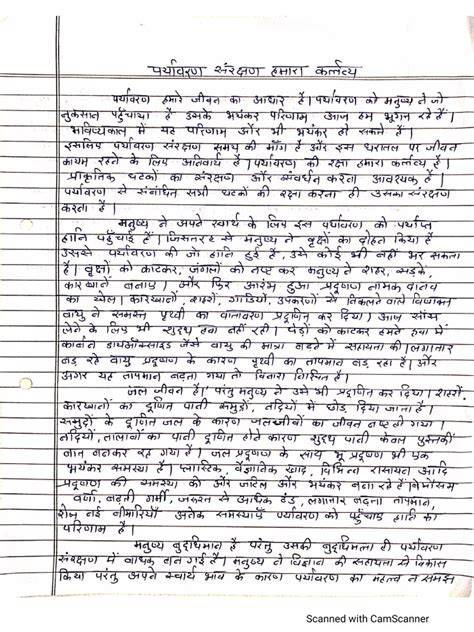 पर्यावरण संरक्षण हमारा कर्तव्य
पर्यावरण हमारे जीवन का आधार है। पर्यावरण को मनुष्य ने जो
नुकसान पहुँचाया है उसके भयंकर परिणाम आज हम भुगत रहे हैं।
भविष्यकाल में यह परिणाम और भी भयंकर हो सकते हैं।
इसलिए पर्यावरण संरक्षण समय की माँग है और इस धरातल पर जीवन
कायम रहने के लिए अनिवार्य है। पर्यावरण की रक्षा हमारा कर्तव्य है।
प्राकृतिक घटकों का संरक्षण और संवर्धन करना आवश्यक है।
पर्यावरण से संबंधित सभी घटकों की रक्षा करना ही उसका संरक्षण
करना है।
मनुष्य ने अपने स्वार्थ के लिए इस पर्यावरण को पर्याप्त
हानि पहुँचाई है। जिसतरह से मनुष्य ने वृक्षों का दोहन किया है
उससे पर्यावरण की जो हानि हुई है, उसे कोई भी नहीं भर सकता
है। वृक्षों को काटकर, जंगलों को नष्ट कर मनुष्य ने शहर, सड़के,
कारखाने बनाए। और फिर आरंभ हुआ प्रदूषण नामक दानव
का खेल। कारखानों, शहरों, गाडियों, उपकरणों से निकलने वाले विषाक्त
वायु ने समस्त पृथ्वी का वातावरण प्रदूषित कर दिया। आज साँस
लेने के लिए भी शुद्ध हवा नहीं रही। पेड़ों को काटकर हमने हवा में
कार्बन डायऑक्साइड जैसे वायु की मात्रा बढने में सहायता की। लगातार
बढ़ रहे वायु प्रदूषण के कारण पृथ्वी का तापमान बढ़ रहा है। और
अगर यह तापमान बढ़ता गया तो विनाश निश्चित है।
जल जीवन है।' परंतु मनुष्य ने उसे भी प्रदूषित कर दिया। शहरों,
कारखानों का दूषित पानी समुद्रों, नदियों में छोड़ दिया जाता है।
समुद्रों के दूषित जल के कारण जलजीवों का जीवन नष्ट हो गया।
नदियों, तालाबों का पानी दूषित होने कारण शुद्ध पानी केवल पुस्तकीं
बात बनकर रह गया है। जल प्रदूषण के साथ भू प्रदूषण भी एक
भयंकर समस्या है। प्लास्टिक, वैज्ञानिक खाद, विभिन्न रासायन आदि
प्रदूषण की समस्या को और जटिल और भयंकर बना रहे हैं। बेमौसम
वर्षा, बढ़ती गर्मी, जरूरत से अधिक ठंड, लगातार बढ़ता तापमान,
रोज नई बीमारियाँ अनेक समस्याएँ पर्यावरण को पहुँचाए हानि का
परिणाम है।
मनुष्य बुद्धिमान है परंतु उसकी बुद्धिमत्ता ही पर्यावरण
संरक्षण में बाधक बन गई है। मनुष्य ने विज्ञान की सहायता से विकास
किया परंतु अपने स्वार्थ भाव के कारण पर्यावरण का महत्व न समझ
Scanned with CamScanner